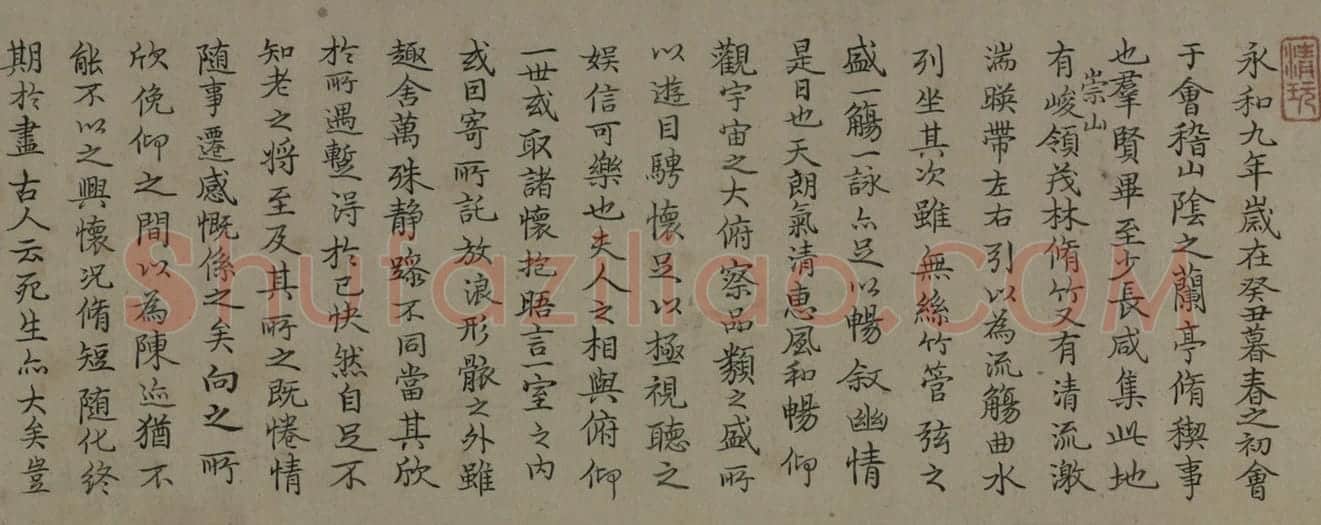 永和九年歲在癸丑暮春之初會
于會稽山陰之蘭亭脩稧事
也羣賢畢至少長咸集此地
有崇山峻領茂林脩竹又有清流激
湍暎帶左右引以為流觴曲水
列坐其次雖無絲竹管弦之
盛一觴一詠亦足以暢叙幽情
是日也天朗氣清惠風和暢仰
觀宇宙之大俯察品類之盛所
以遊目騁懷足以極視聽之
娱信可樂也夫人之相與俯仰
一世或取諸懷抱晤言一室之內
或因寄所託放浪形骸之外雖
趣舍萬殊静躁不同當其欣
於所遇蹔得於己快然自足不
知老之將至及其所之既惓情
随事遷感慨係之矣向之所
欣俛仰之間以為陳迹猶不
能不以之興懷況脩短随化終
期於盡古人云死生亦大矣豈
情玩
Shufaziliao.COM